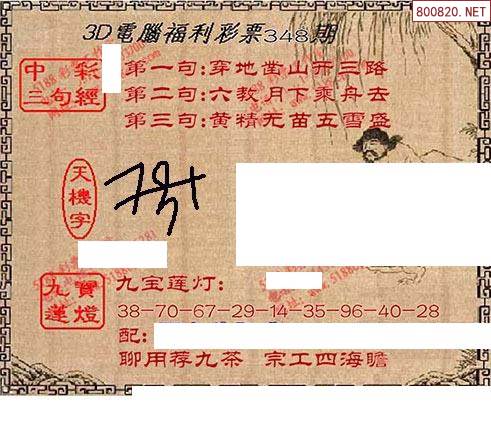 800820.NET
3D電腦福利彩票348期
中彩
三句經
第一句:穿地凿山开三路
第二句:六教月下乘舟去
第三句:黄精无苗五雪盛
天機字
九寶
蓮燈
九宝莲灯:
38-70-67-29-14-35-96-40-28
配:
聊用荐九茶 宗工四海瞻